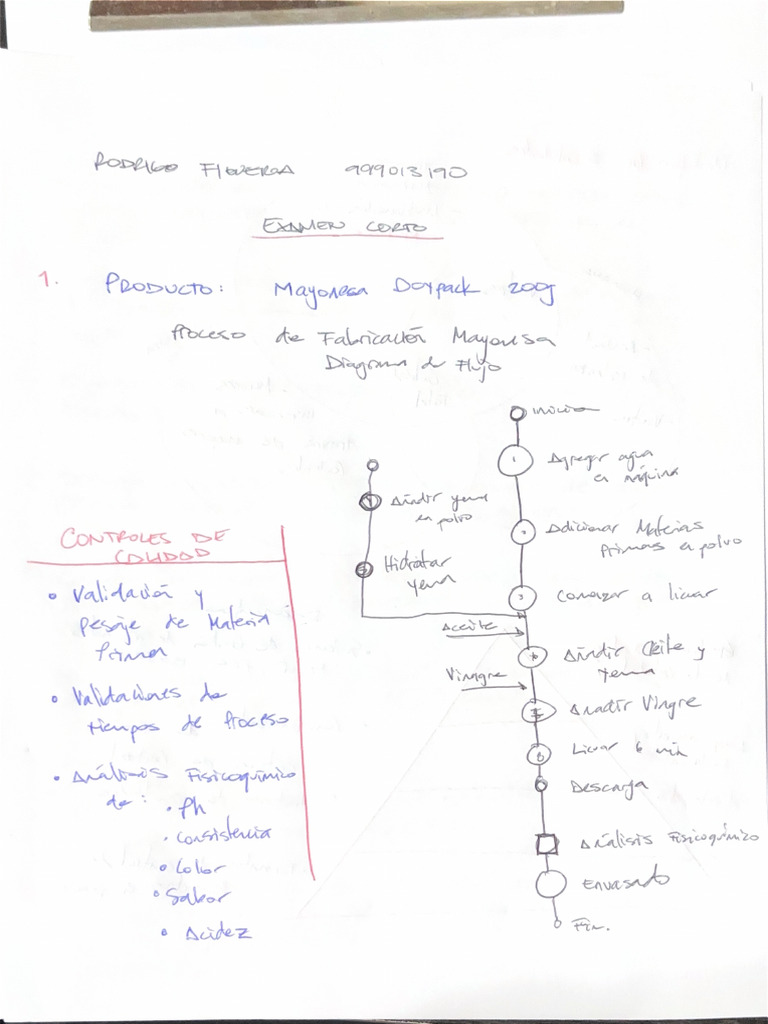 RODRIGO FIGUEROA 999013190
EXAMEN CORTO
1. PRODUCTO: Mayonesa Doypack 200g
Proceso de Fabricación Mayonesa
Diagrama de Flujo
inicio
1 Agregar agua
en máquina
Añadir yema
en polvo
2 Adicionar Materias
Primas en polvo
Hidratar
yema
3 Comenzar a licuar
Aceite
Añadir Aceite y
yema
Vinagre
Añadir Vingre
6 Licuar 6 min
Descarga
Análisis Fisicoquímico
Envasado
Fin.
CONTROLES DE
CALIDAD
• Validación y
pesaje de Materia
Prima
• Validaciones de
tiempos de Proceso
• Análisis Fisicoquímico
de: • Ph
• Consistencia
• Color
• Sabor
• Acidez